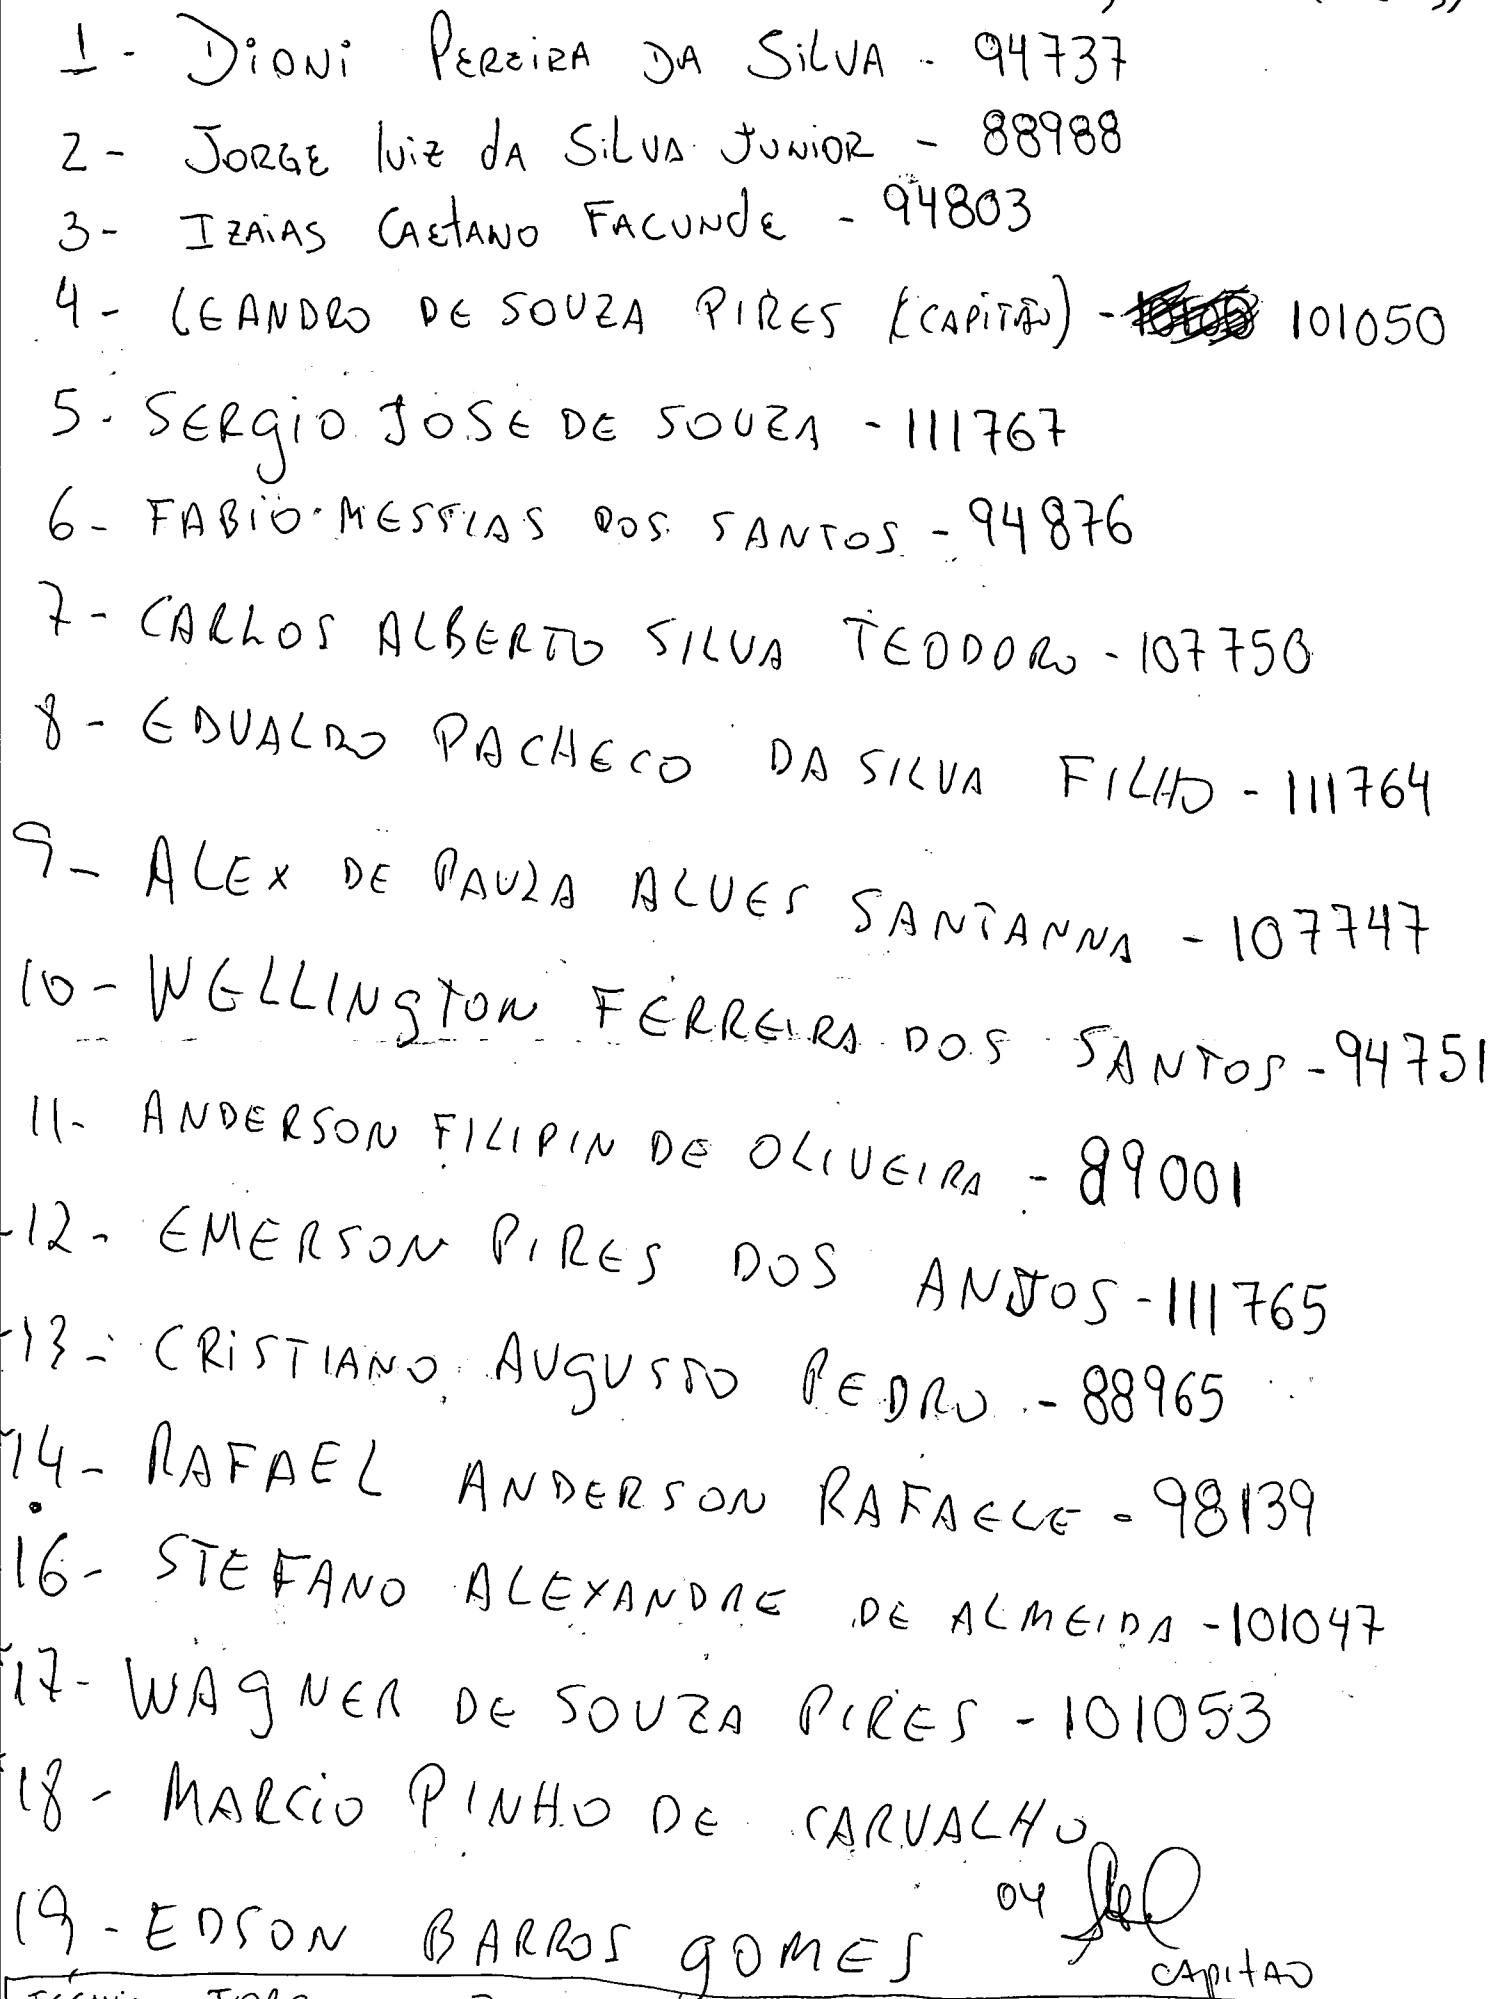 1 - DiONi PEREiRA DA SiLVA - 94737
2 - JORGE luiz dA SiLVA JUNiOR - 88988
3 - IZAiAS CAEtANO FACUNdE - 94803
4 - LEANDRO DE SOUZA PIRES (CAPiTÃO) - 101050
5 - SERgiO JOSE DE SOUZA - 111767
6 - FABiO MESSIAS DOS SANTOS - 94876
7 - CARLOS ALBERTO SILVA TEODORO - 107750
8 - EDVALDO PACHECO DA SILVA FILHO - 111764
9 - ALEX DE PAULA ALVES SANTANNA - 107747
10 - WELLINgTON FERREIRA DOS SANTOS - 94751
11 - ANDERSON FILIPIN DE OLIVEIRA - 89001
12 - EMERSON PIRES DOS ANJOS - 111765
13 - CRiSTIANO AUgUSTO PEDRO - 88965
14 - RAFAEL ANDERSON RAFAELE - 98139
16 - STEFANO ALEXANDRE DE ALMEIDA - 101047
17 - WAgNER DE SOUZA PIRES - 101053
18 - MARCiO PINHO DE CARVALHO
19 - EDSON BARROS gOMES 04
CAPitAO